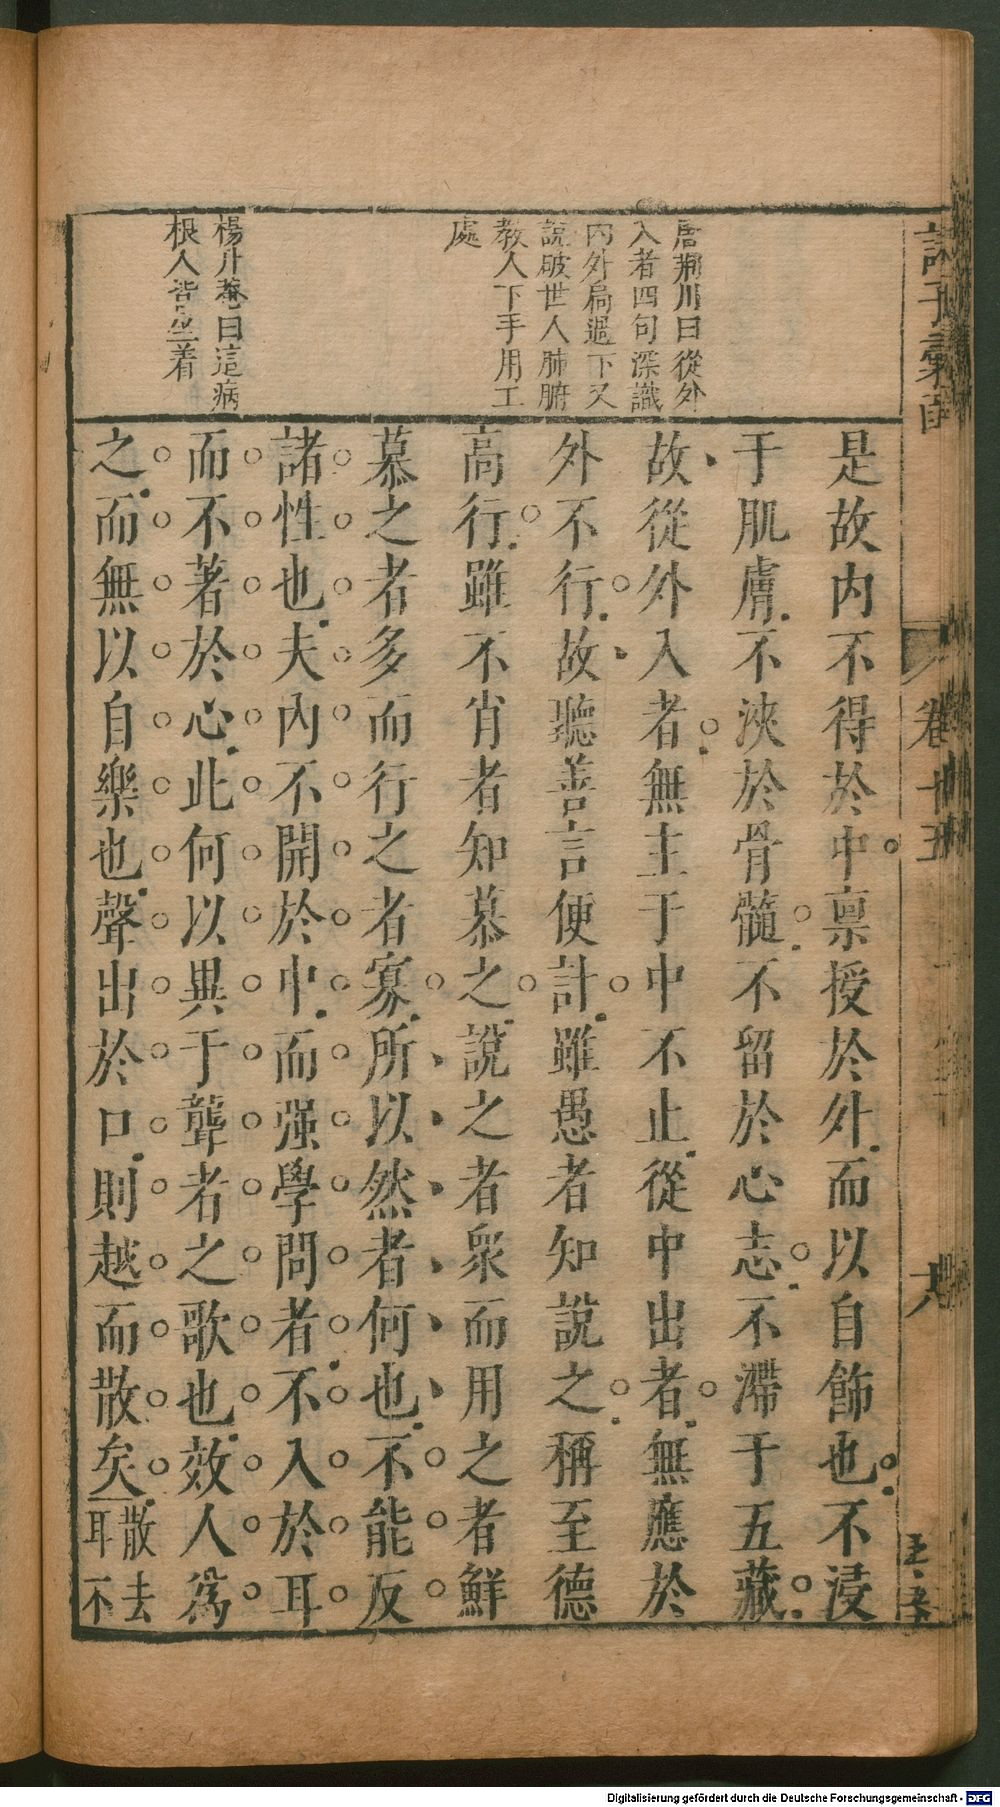 諸子彙函
卷十五
六
唐荆川曰從外
入者四句深識
内外扃過下又
說破世人肺腑
教人下手用工
處
楊升菴曰這病
根人皆坐着
是故内不得於中稟授於外而以自飾也不浸
于肌膚不浹於骨髓不留於心志不滯于五藏
故從外入者無主于中不止從中出者無應於
外不行故聽善言便計雖愚者知說之稱至德
高行雖不肖者知慕之說之者衆而用之者鮮
慕之者多而行之者寡所以然者何也不能反
諸性也夫内不開於中而强學問者不入於耳
而不著於心此何以異于聾者之歌也效人爲
之而無以自樂也聲出於口則越而散矣
散去
耳不
Digitalisierung gefördert durch die Deutsche Forschungsgemeinschaft - DFG